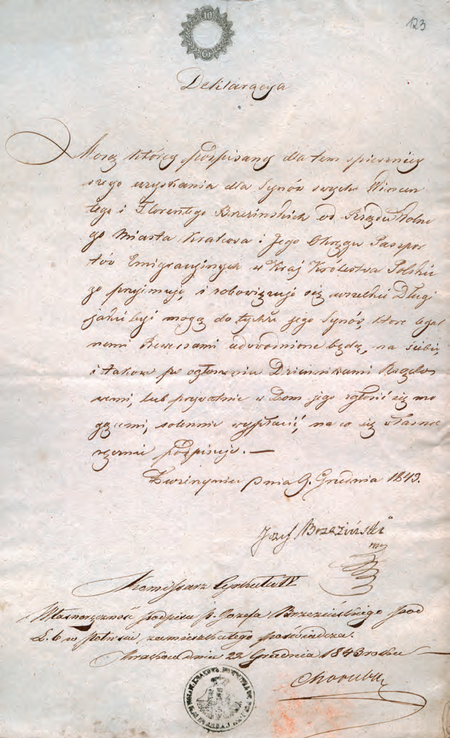 123
10
Deklaracya
Mocą której podpisany dla tem spieszniej
szego uzyskania dla Synów swych Wincen
tego i Florentego Brzezińskich od Rządu Wolne
go Miasta Krakowa i Jego Okręgu Paszpor
tów Emigracyjnych w Kraj Królestwa Polskie
go przyjmuje i zobowiązuje się wszelkie Długi
jakie być mogą do tychże jego Synów, które legal
nemi Bewizami udowodnione będą, na siebie
i takowe po ogłoszeniu Dziennikami Rządow
emi, lub prywatnie w Dom jego zgłosić się mo
gącemi, solennie wypłacić, na co się własno
ręcznie podpisuje. —
dnia 9. Grudnia 1843.
Józef Brzeziński
Kommisarz Cyrkułu IV
Własnoręczność podpisu p. Józefa Brzezińskiego pod
L. 6 w zamieszkałego poświadcza.
Kraków dnia 22 Grudnia 1843 roku